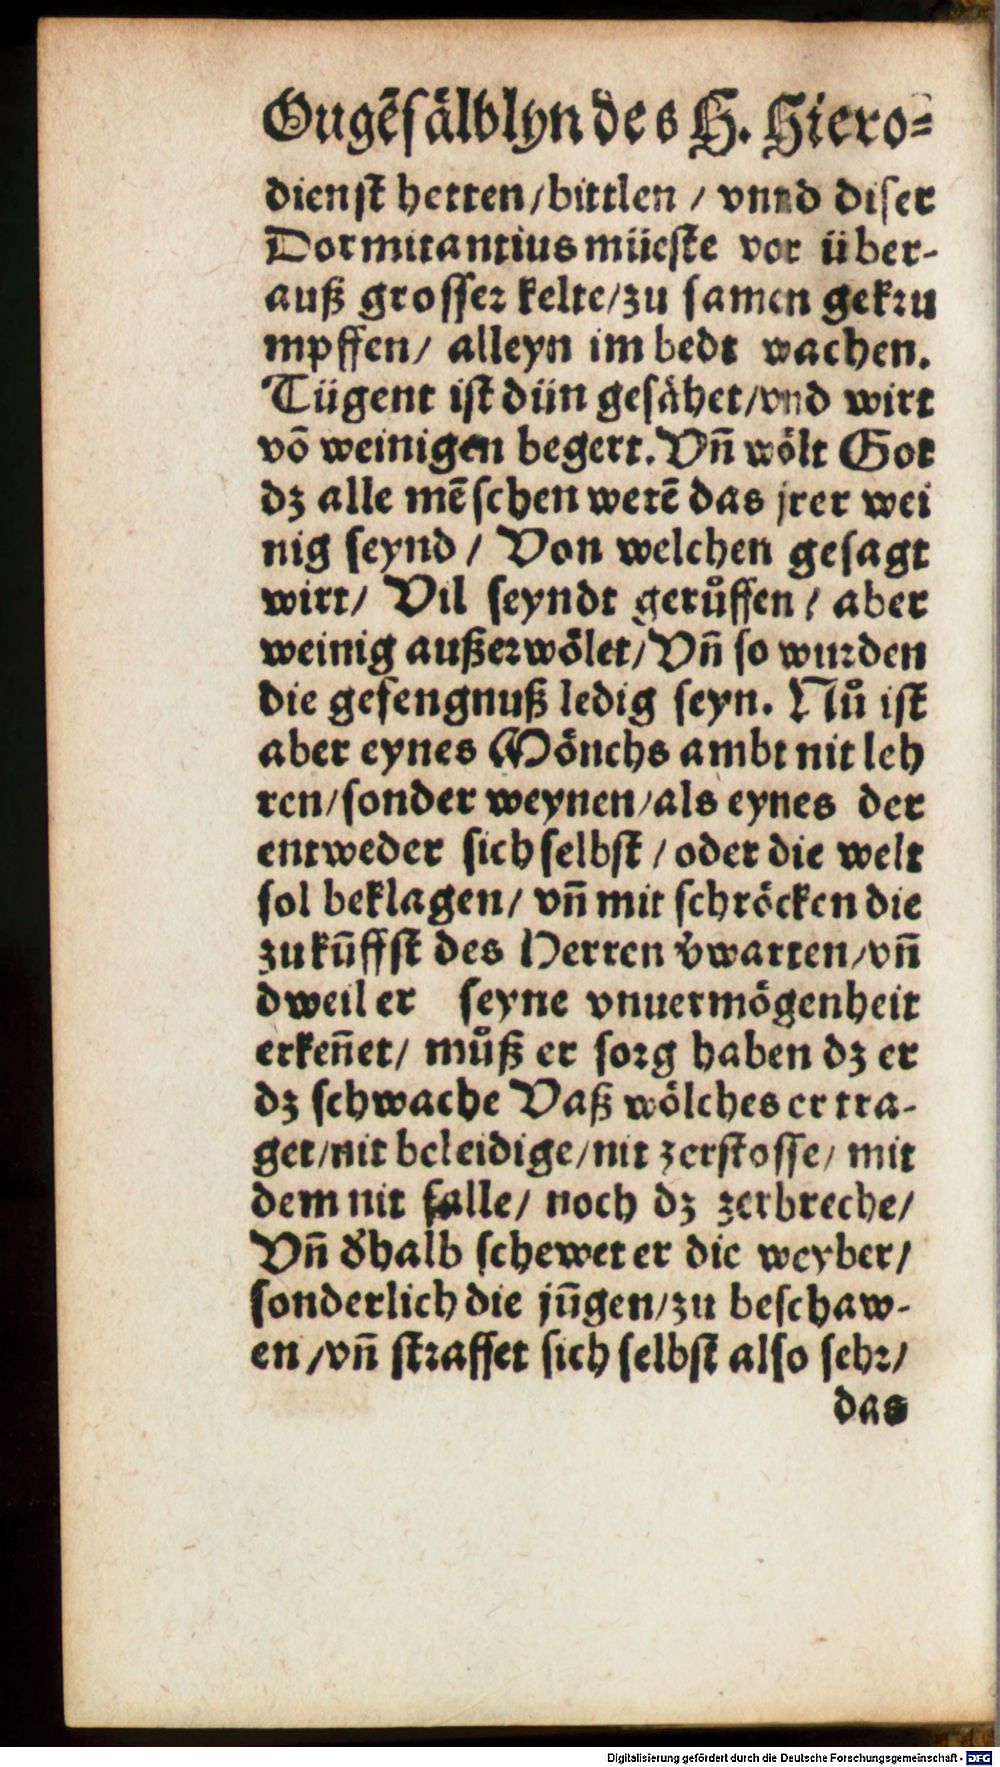 Ougēsälblyn des H. Hiero⸗
dienst hetten/bittlen / vnnd diser
Dormitantius müeste vor über-
auß grosser kelte/zu samen gekru
mpffen/ alleyn im bedt wachen.
Tügent ist dün gesähet/vnd wirt
vō weinigen begert. Vn̄ wölt Got
dz alle mēschen werē das jrer wei
nig seynd / Von welchen gesagt
wirt/ Vil seyndt gerůffen / aber
weinig außerwölet/Vn̄ so wurden
die gefengnuß ledig seyn. Nů ist
aber eynes Mönchs ambt nit leh
ren/sonder weynen/als eynes der
entweder sich selbst / oder die welt
sol beklagen/ vn̄ mit schröcken die
zukūffst des Herren v̄warten/vn̄
dweil er seyne vnuermögenheit
erken̄et/ můß er sorg haben dz er
dz schwache Vaß wölches er tra-
get/nit beleidige/nit zerstosse/ mit
dem nit falle/ noch dz zerbreche/
Vn̄ d̄halb schewet er die weyber/
sonderlich die jūgen/zu beschaw-
en /vn̄ straffet sich selbst also sehr/
das
Digitalisierung gefördert durch die Deutsche Forschungsgemeinschaft - DFG